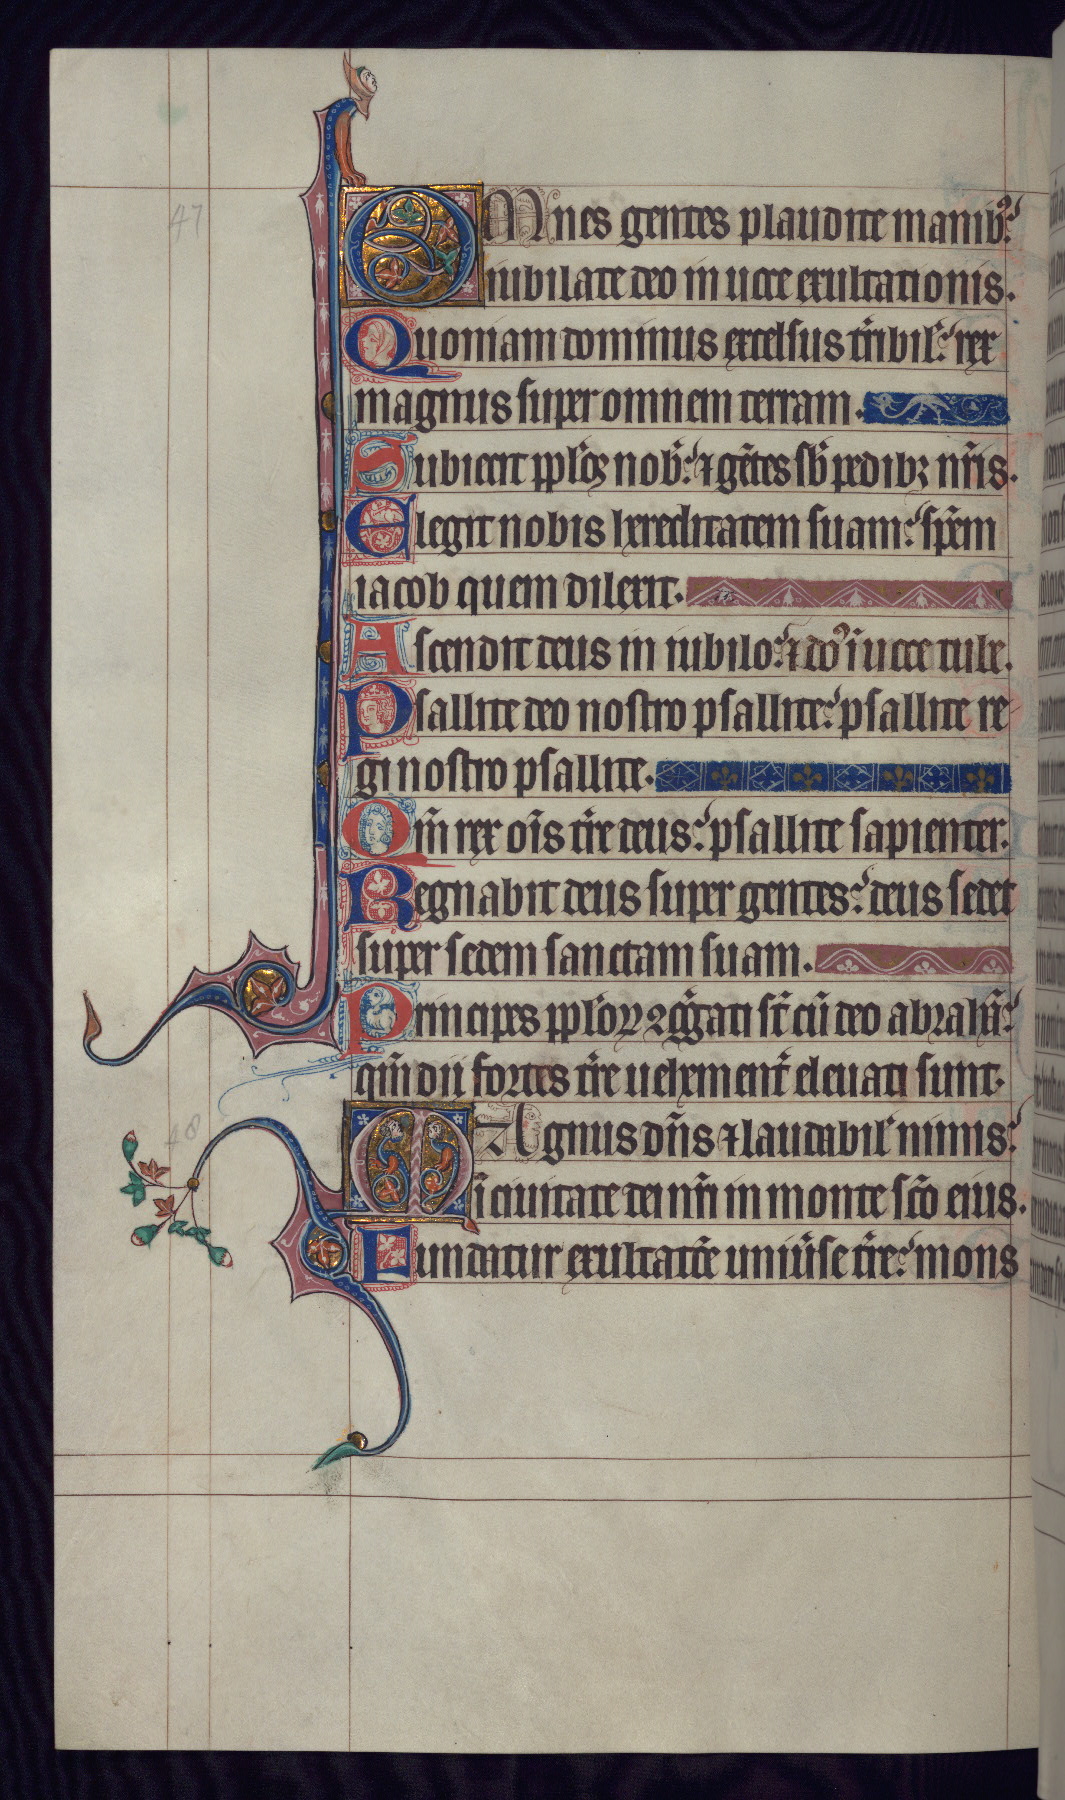 47
OMnes gentes plaudite manib₉
iubilate deo in uoce exultationis.
Quoniam dominus excelsus tr̄ibil̄: rex
magnus super omnem terram.
Subiecit ppl̄oꝝ nob̄: ⁊ gētes sb̄ pedibꝫ nr̄is.
Elegit nobis hereditatem suam: sp̄em
iacob quem dilexit.
Ascendit deus in iubilo: ⁊ do᷒ ī uoce tube.
Psallite deo nostro psallite: psallite re
gi nostro psallite.
Qm̄ rex oīs tr̄e deus: psallite sapienter.
Regnabit deus super gentes: deus sedet
super sedem sanctam suam.
Principes ppl̄oꝝ ꝯḡgati st̄ cū deo abrahā:
qm̄ dij fortes tr̄e uehement̄ eleuati sunt.
48
MAgnus dn̄s ⁊ laudabil̄ nimis:
ī ciuitate dei nr̄i in monte sc̄o eius.
Fundatur exultatōe uniūse tr̄e: mons